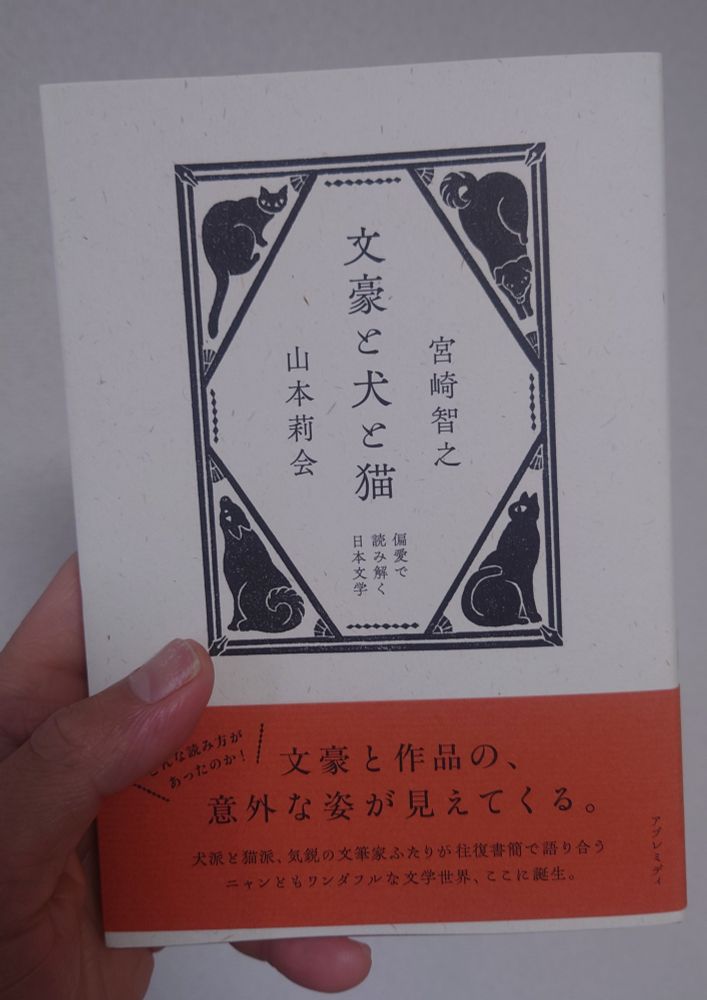 宮崎智之
文豪と犬と猫
山本莉会
偏愛で
読み解く
日本文学
んな読み方が
あったのか!
文豪と作品の、
意外な姿が見えてくる。
犬派と猫派、気鋭の文筆家ふたりが往復書簡で語り合う
ニャンともワンダフルな文学世界、ここに誕生。
アプレミディ